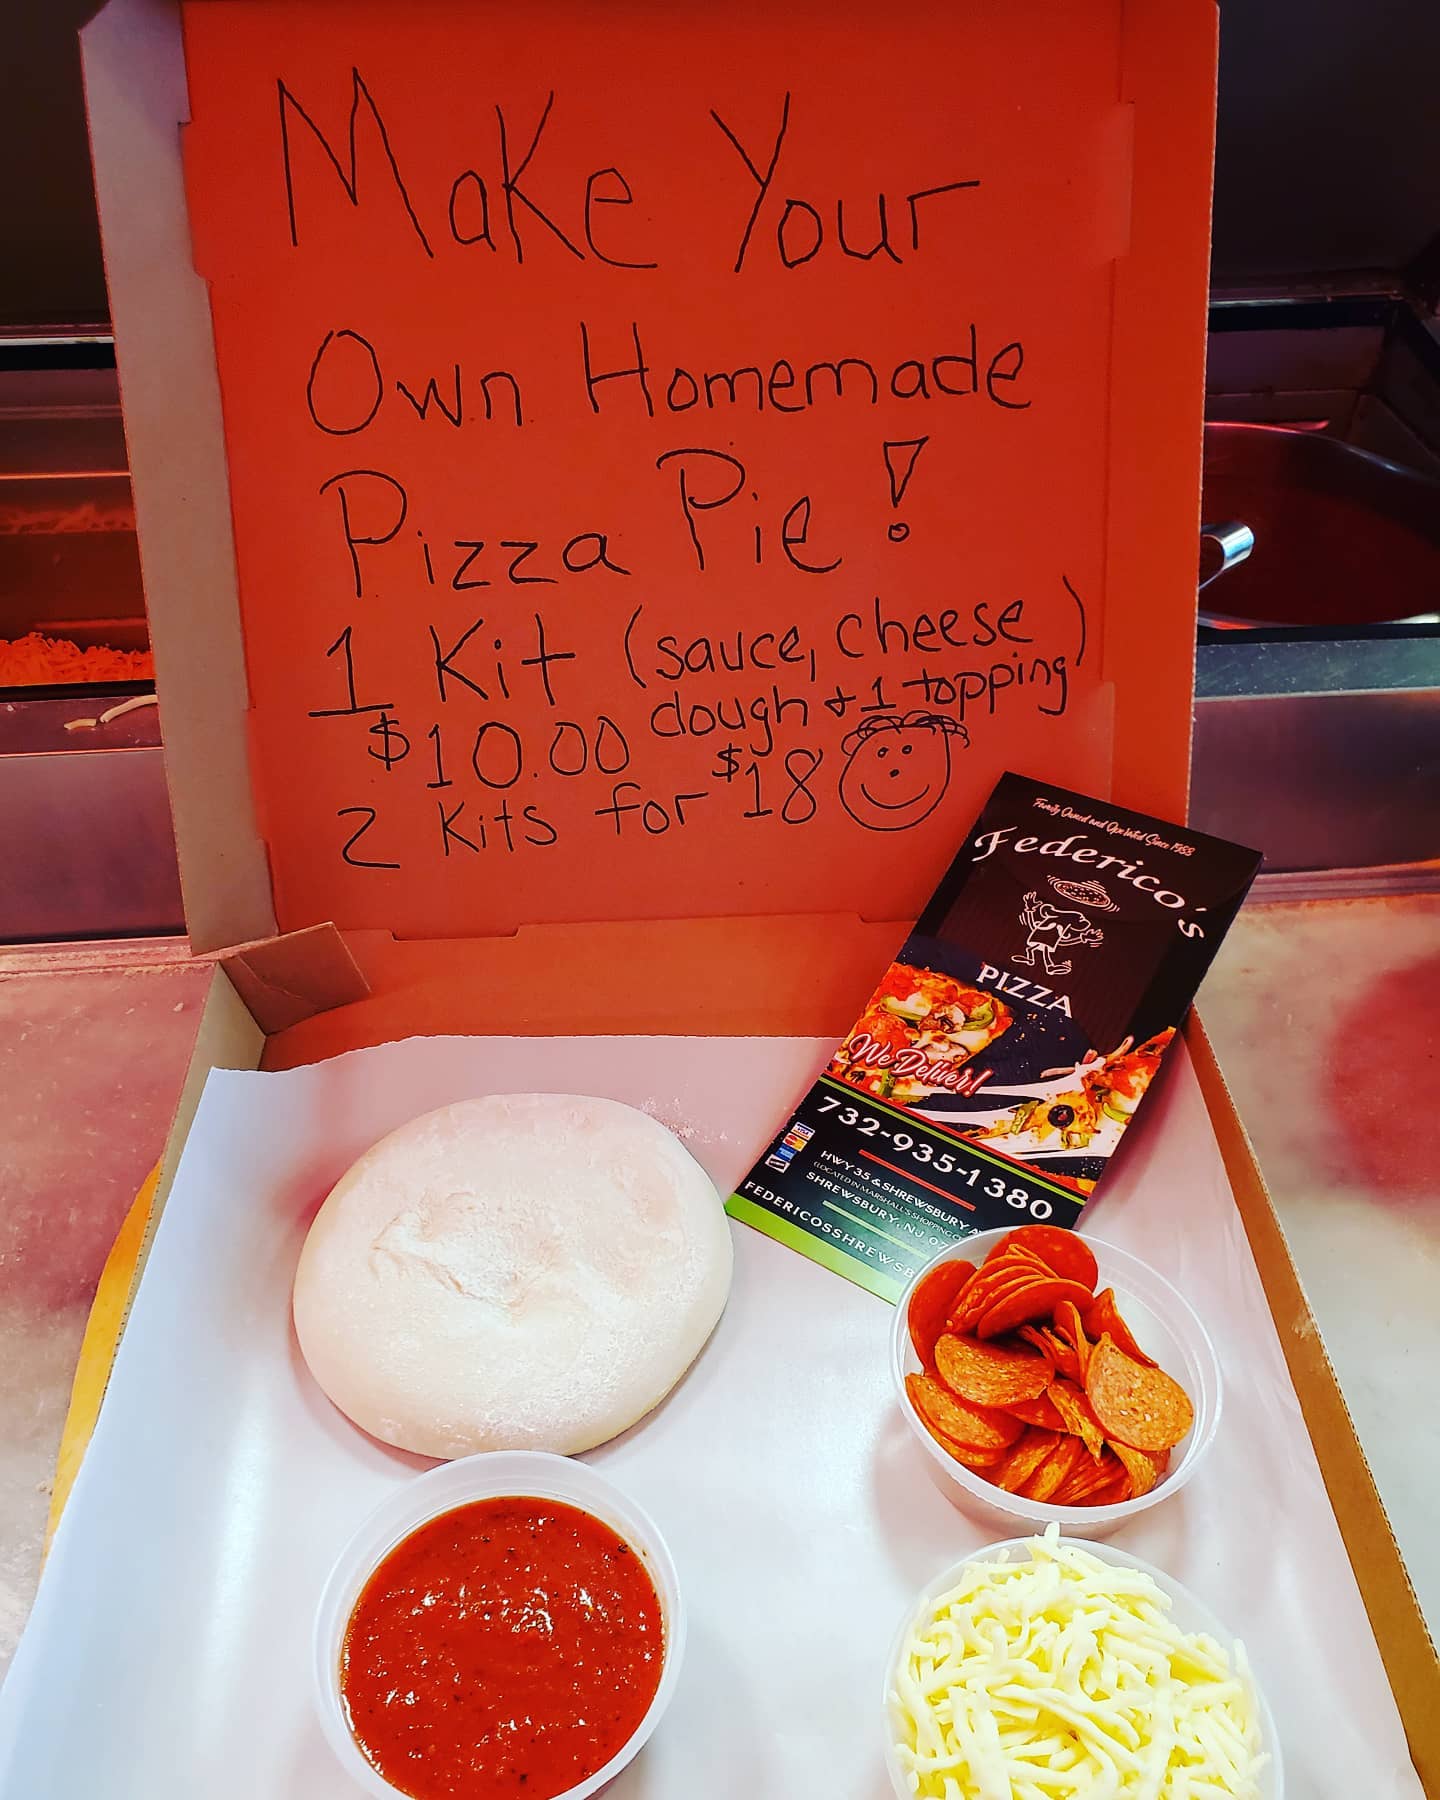 Make Your
Own Homemade
Pizza Pie!
1 Kit (sauce, cheese
dough + 1 topping)
$10.00
2 Kits for $18
Family Owned and Operated Since 1988
Federico's
PIZZA
We Deliver!
732-935-1380
VISA
HWY 35 & SHREWSBURY A
(LOCATED IN MARSHALL'S SHOPPING C
SHREWSBURY, NJ 07
FEDERICOSSHREWSB